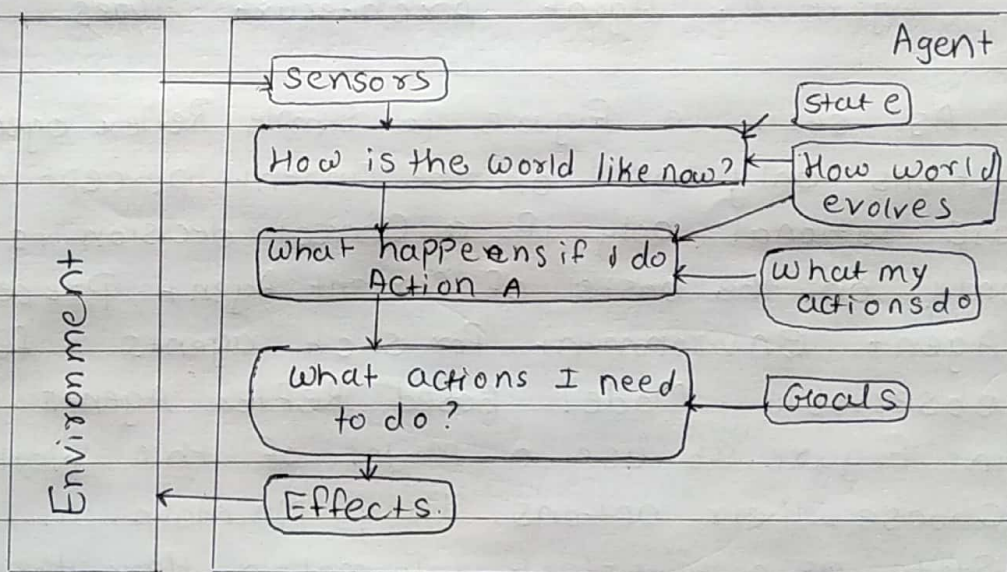 Agent
Sensors
State
How is the world like now?
How world
evolves
What happens if I do
Action A
What my
actions do
What actions I need
to do?
Goals
Effects.
Environment